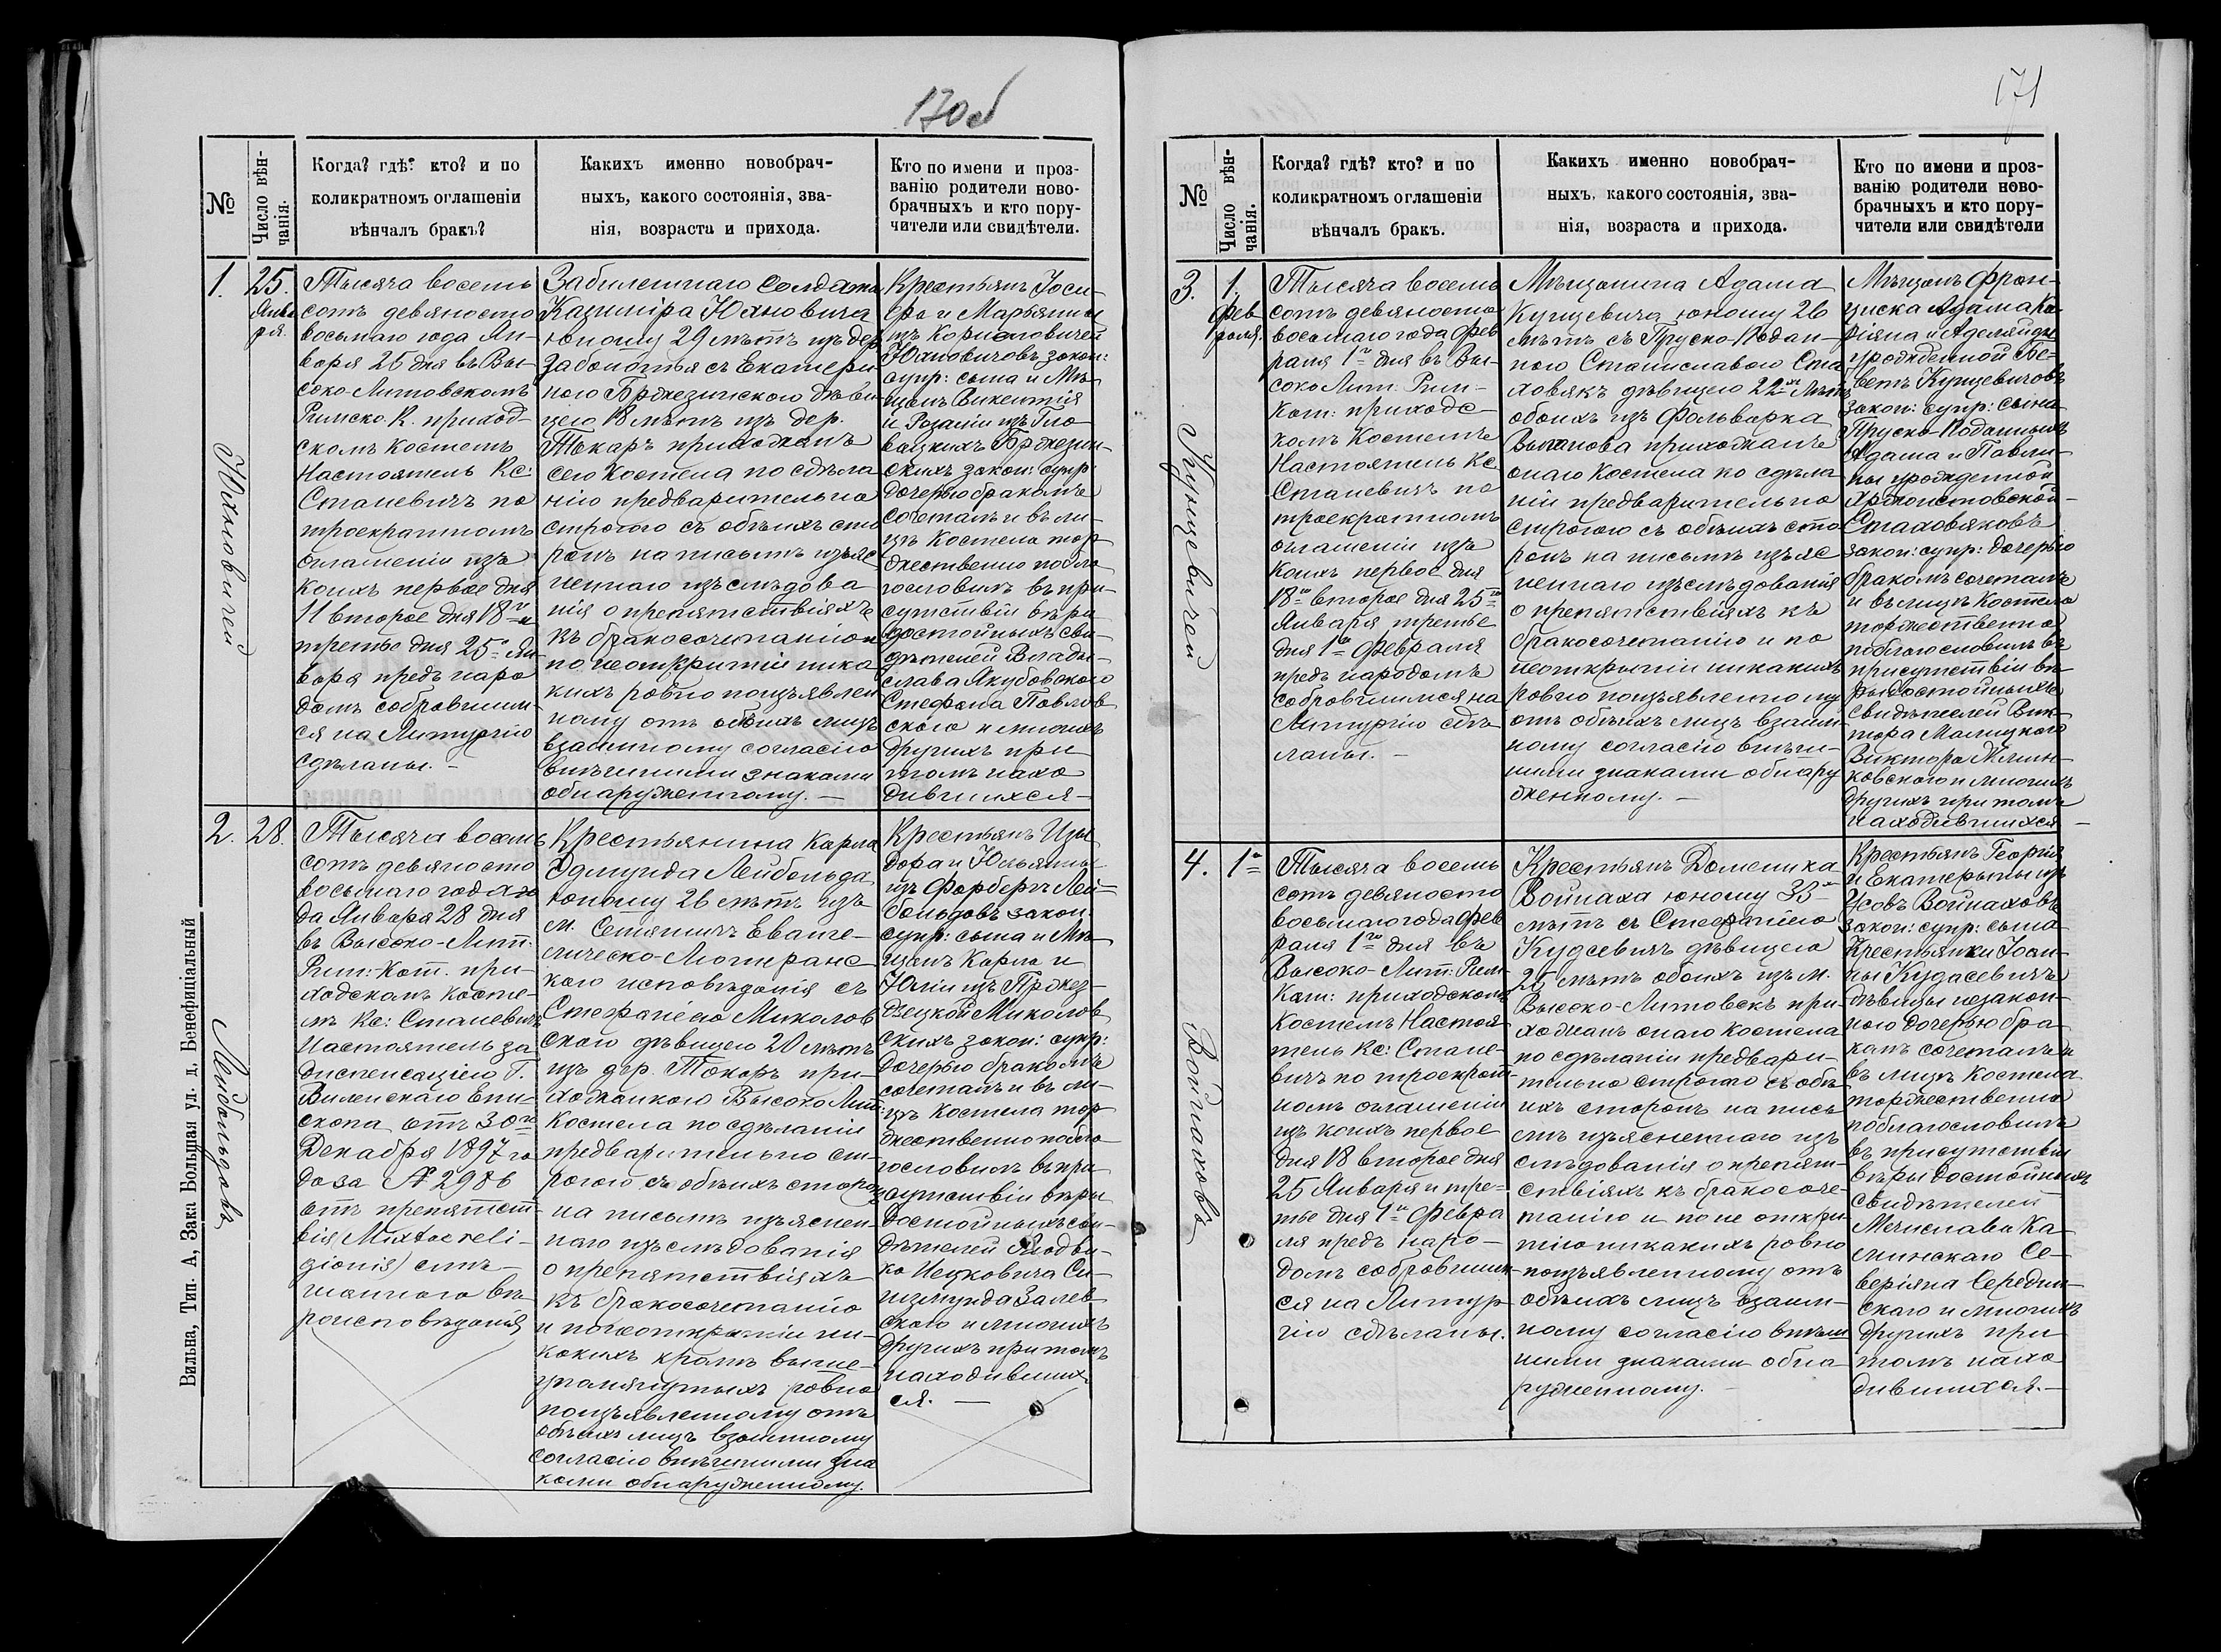 170об
№
Число вѣн-
чанія.
Когда? гдѣ? кто? и по
коликратномъ оглашеніи
вѣнчалъ бракъ?
Какихъ именно новобрач-
ныхъ, какого состоянія, зва-
нія, возраста и прихода.
Кто по имени и проз-
ванію родители ново-
брачныхъ и кто пору-
чители или свидѣтели.
1.
25.
Янва
ря
Юхновичей
Тысяча восемь
сотъ девяносто
восьмаго года Ян-
варя 25 дня въ Вы-
соко-Литовскомъ
Римско-К. приход-
скомъ костелѣ
Настоятель Кс:
Станевичъ по
троекратномъ
оглашеніи изъ
коихъ первое дня
11 второе дня 18го и
третье дня 25го Ян-
варя предъ наро
домъ собравшим-
ся на Литургію
сдѣланы. -
Забилетнаго солдата
Казиміра Юхновича
юношу 29 лѣтъ изъ дер
Заболотья съ Екатери
ною Бржезинскою дѣви
цею 18 лѣтъ изъ дер.
Токаръ прихожанъ
сего костела по сдѣла
нію предварительно
строгого съ обѣихъ сто
ронъ на письмѣ изъяс
неннаго изъслѣдова
нія о препятствіяхъ
къ бракосочетанію и
по неоткрытіи ника
кихъ ровно поизъявлен
ному отъ обоихъ лицъ
взаимному согласію
внѣшними знаками
обнаруженному. -
Крестьянъ Іоси-
фа и Марьянны
изъ Корнаовичей
Юхновичовъ закон:
супр: сына и Мѣ
щанъ Викентія
и Розаліи изъ Гло
вацкихъ Бржезин-
скихъ закон: супр:
дочерью бракомъ
сочеталъ и въ ли-
цѣ костела тор
жественно побла
гословилъ въ при-
сутствіи вѣры
достойныхъ сви-
дѣтелей Влады-
слава Якубовскаго
Стефана Павлов
скаго и многихъ
другихъ при
томъ нахо
дившихся -
2.
28.
Лейбольдовъ
Тысяча восемь
сотъ девяносто
восьмаго года
Января 28 дня
въ Высоко-Лит:
Рим: Кат. при-
ходскомъ косте-
лѣ Кс: Станевичъ
Настоятель за
диспенсаціею Г.
Виленскаго Епи-
скопа отъ 30го
Декабря 1897 го
да за № 2986
отъ препятст-
вія (Mixtae reli-
gionis) смѣ-
шаннаго вѣ-
роисповѣданія
Крестьянина Карла
Эдмунда Лейбольда
юношу 26 лѣтъ изъ
м. Сѣмятичъ Еванге-
лическо-Лютеранс-
каго исповѣданія съ
Стефаніею Миколов
скою дѣвицею 20 лѣтъ
изъ дер. Токаръ при-
хожанкою Высоко Лит:
костела по сдѣланіи
предварительно ст-
рогого съ обѣихъ сторон
на письмѣ изъяснен-
наго изъслѣдованія
о препятствіяхъ
къ бракосочетанію
и по неоткрытіи ни-
какихъ кромѣ выше-
упомянутыхъ ровно
поизъявленному отъ
обѣихъ лицъ взаимному
согласію внѣшними зна
ками обнаруженному.
Крестьянъ Изы
дора и Юльянны
изъ Фарберъ Лей-
больдовъ закон.
супр: сына и Мѣ
щанъ Карла и
Юліи изъ Пржез-
децкой Миколов
скихъ закон: супр:
дочерью бракомъ
сочеталъ и въ ли-
цѣ костела тор
жественно побла-
гословилъ въ при
сутствіи вѣры
достойныхъ сви-
дѣтелей Людви-
ка Ицковича Си-
гизмунда Залев
скаго и многихъ
другихъ притомъ
находивших
ся. -
Вильна, Тип. А. Зака Большая ул. д. Бенефиціальный
171
№
Число вѣн-
чанія.
Когда? гдѣ? кто? и по
коликратномъ оглашеніи
вѣнчалъ бракъ.
Какихъ именно новобрач-
ныхъ, какого состоянія, зва-
нія, возраста и прихода.
Кто по имени и проз-
ванію родители ново-
брачныхъ и кто пору-
чители или свидѣтели
3.
1.
Фев
раля.
Кунцевичей
Тысяча восемь
сотъ девяносто
восьмаго года Фев
раля 1го дня въ Вы-
соко Лит: Рим-
Кат: приходс-
комъ костелѣ
Настоятель Кс
Станевичъ по
троекратномъ
оглашеніи изъ
коихъ первое дня
18го второе дня 25го
Января третье
дня 1го Февраля
предъ народомъ
собравшимся на
Литургію сдѣ
ланы. -
Мѣщанина Адама
Кунцевича юношу 26
лѣтъ съ Пруско-Подан-
ною Станиславою Ста
ховякъ дѣвицею 22хъ лѣтъ
обоихъ изъ Фольварка
прихожанъ
онаго костела по сдѣла
ніи предварительно
строгою съ обѣихъ сто
ронъ на письмѣ изъяс
неннаго изъслѣдованія
о препятствіяхъ къ
бракосочетанію и по
неоткрытіи никакихъ
ровно поизъявленному
отъ обѣихъ лицъ взаим-
ному согласію внѣш-
ними знаками обнару
женному. -
Мѣщанъ Фран-
циска Адама Ка-
ріяна и Аделяйды
урожденной Бе-
Кунцевичовъ
закон: супр: сына
Пруско-Поданныхъ
Адама и Павли-
ны урожденной
Хржонстовской-
Стаховяковъ
закон: супр: дочерью
бракомъ сочеталъ
и въ лицѣ костела
торжественно
поблагословилъ въ
присутствіи вѣ-
ры достойныхъ
свидѣтелей Вик-
тора Малицкаго
Виктора
и многихъ
другихъ при томъ
находившихся -
4.
1го
Войтаховъ
Тысяча восемь
сотъ девяносто
восьмаго года Фев
раля 1го дня въ
Высоко-Лит: Рим
Кат: приходскомъ
костелѣ Настоя-
тель Кс: Стане-
вичъ по троекрат-
номъ оглашеніи
изъ коихъ первое
дня 18 второе дня
25 Января и тре-
тье дня 1го Февра
ля предъ наро-
домъ собравшим-
ся на Литур
гію сдѣланы.
Крестьянъ Доменика
Войтаха юношу 33хъ
лѣтъ съ Стефаніею
Кудасевичъ дѣвицею
25 лѣтъ обоихъ изъ м.
Высоко-Литовскъ при-
хожанъ онаго костела
по сдѣланіи предвари-
тельно строгого съ обѣ
ихъ сторонъ на пись
мѣ изъясненнаго изъ
слѣдованія о препят-
ствіяхъ къ бракосоче-
танію и по не откры-
тію никакихъ ровно
поизъявленному отъ
обѣихъ лицъ взаим-
ному согласію внѣш
ними знаками обна
руженному. -
Крестьянъ Георгія
и Екатерыны изъ
Усовъ Войтаховъ
закон: супр: сына
Крестьянки Іоан-
ны Кудасевичъ
дѣвицы незакон-
ною дочерью бра-
комъ сочеталъ и
въ лицѣ костела
торжественно
поблагословилъ
въ присутствіи
вѣры достойныхъ
свидѣтелей
Мечислава Ка-
минскаго Се-
веріяна Середин-
скаго и многихъ
другихъ при
томъ нахо
дившихся. -